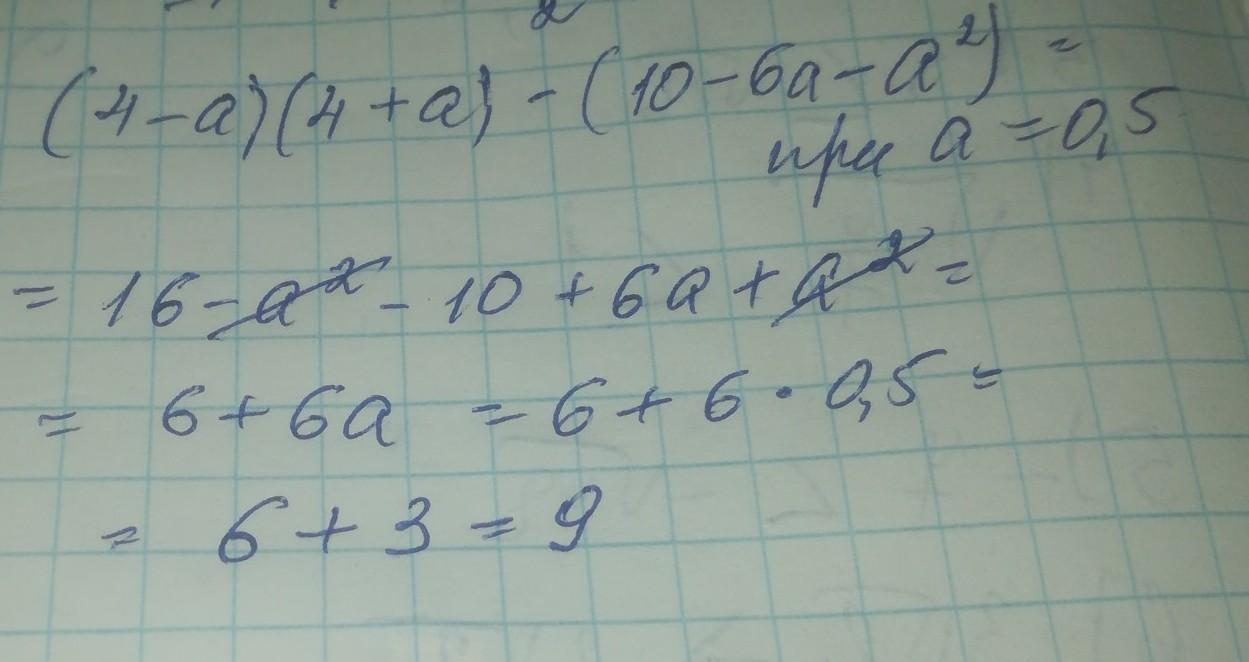 (4-a)(4+a)-(10-6a-a²)=
при a=0,5
=16-a²-10+6a+a²=
=6+6a=6+6·0,5=
=6+3=9